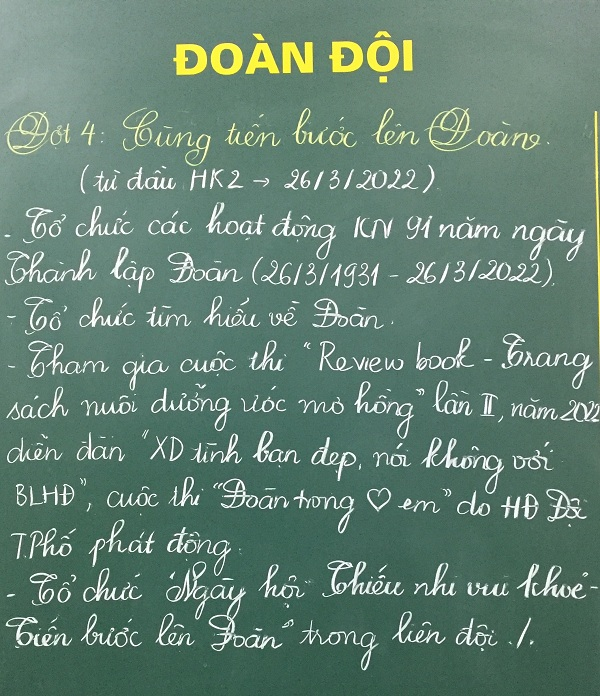 ĐOÀN ĐỘI
Đợt 4: Cùng tiến bước lên Đoàn.
(từ đầu HK2 → 26/3/2022)
- Tổ chức các hoạt động KN 91 năm ngày
Thành lập Đoàn (26/3/1931 - 26/3/2022).
- Tổ chức tìm hiểu về Đoàn.
- Tham gia cuộc thi "Review book - Trang
sách nuôi dưỡng ước mơ hồng" lần II, năm 2022
diễn đàn "XD tình bạn đẹp, nói không với
BLHĐ", cuộc thi "Đoàn trong ♡ em" do HĐ Đội
T.Phố phát động.
- Tổ chức "Ngày hội Thiếu nhi vui khoẻ -
Tiến bước lên Đoàn" trong liên đội ./.